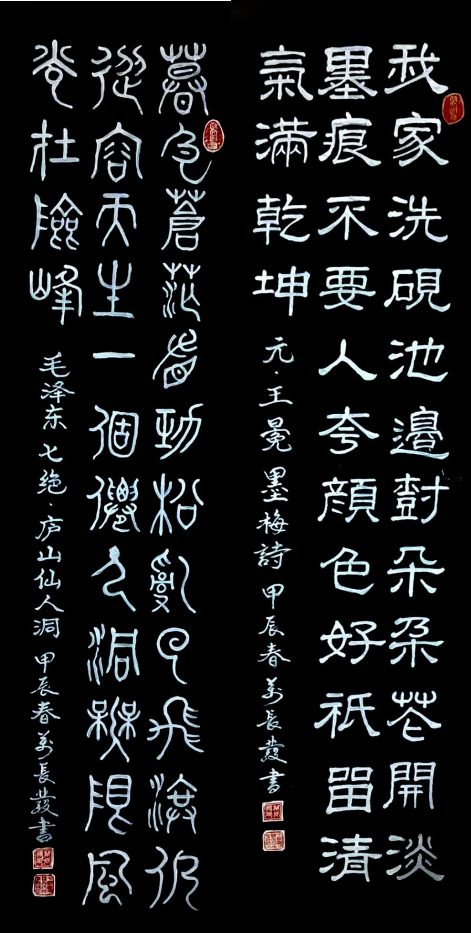 我家洗硯池邊樹朵朵花開淡
墨痕不要人夸顔色好祇留清
氣滿乾坤
元·王冕 墨梅詩 甲辰春萬長發書
暮色蒼茫看勁松亂雲飛渡仍
從容天生一個僊人洞無限風
光在險峰
毛泽东 七绝·庐山仙人洞 甲辰春萬長發書